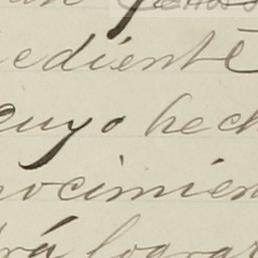 ediente
cuyo hech
nocimien
rá lograr